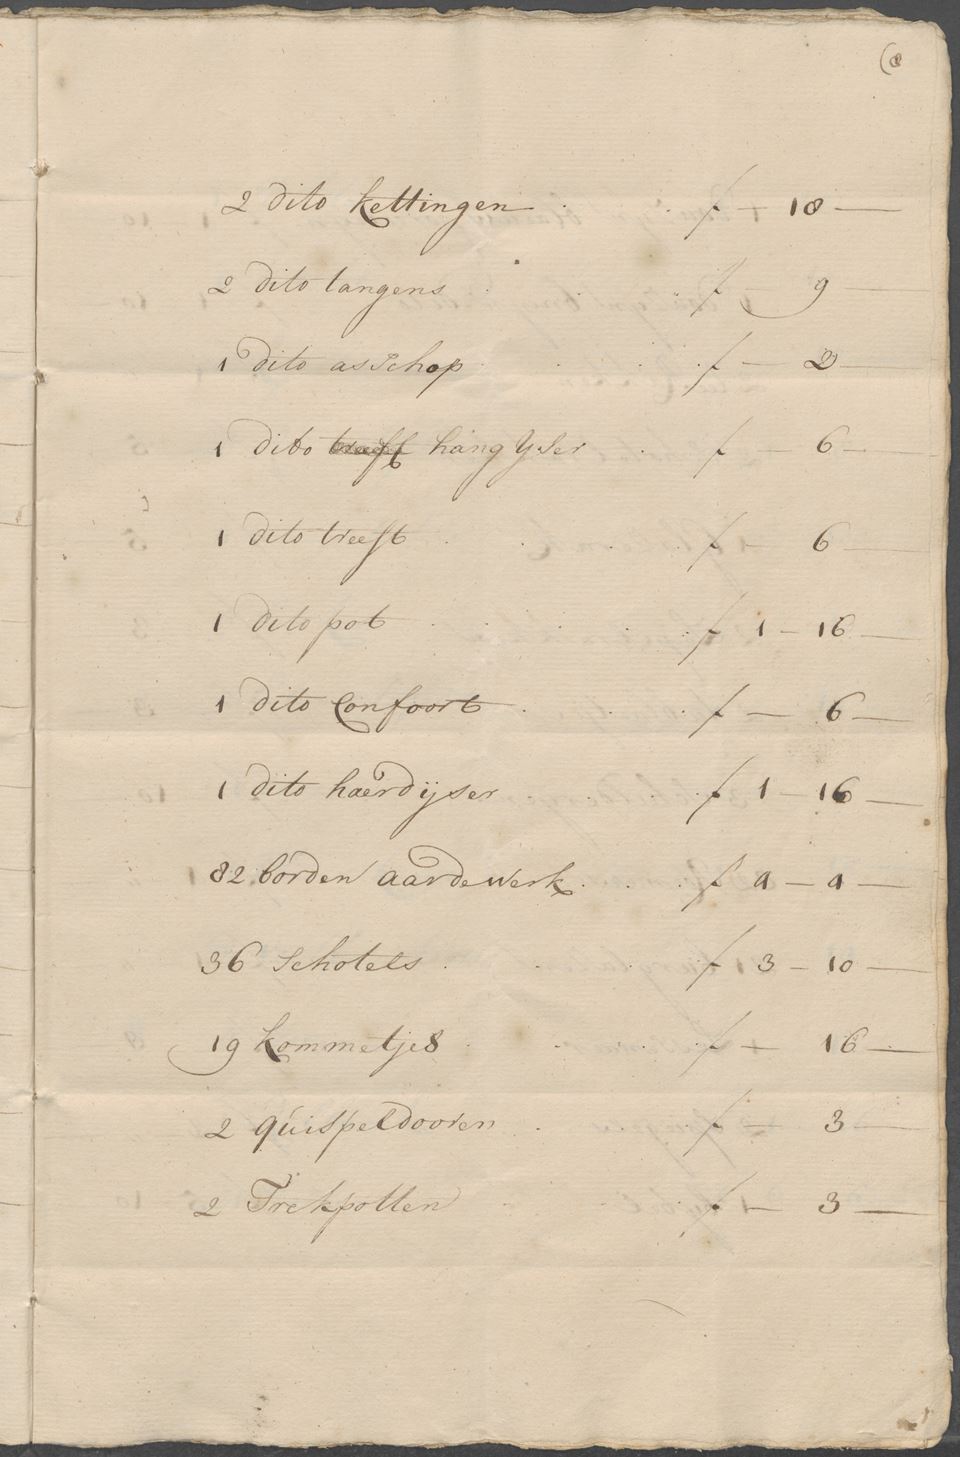 (8
2 dito kettingen . . f — 18 —
2 dito tangens . . f — 9 —
1 dito asschop . . . . f — 2 —
1 dito treeft hang ijser . f — 6 —
1 dito treeft . . . . f — 6 —
1 dito pot . . . . f 1 — 16 —
1 dito Confoort . . . f — 6 —
1 dito haerdijser . . . . f 1 — 16 —
82 borden aardewerk . . . f 4 — 4 —
36 schotels . . . f 3 — 10 —
19 kommetjes . . . f — 16 —
2 quispeldooren . . f — 3 —
2 Trekpotten . . f — 3 —